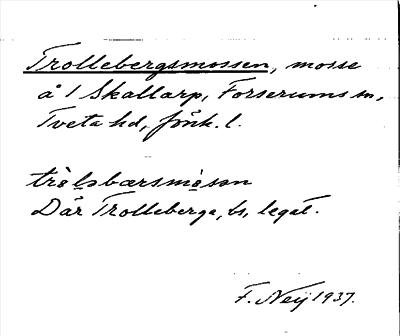 Trollebergsmossen, mosse
å 1 Skallarp, Forserums sn,
Tveta hd, Jönk. l.
trò̤lsbærsmò̤sən
Där Trolleberga, bs, legat.
F. Neij 1937.